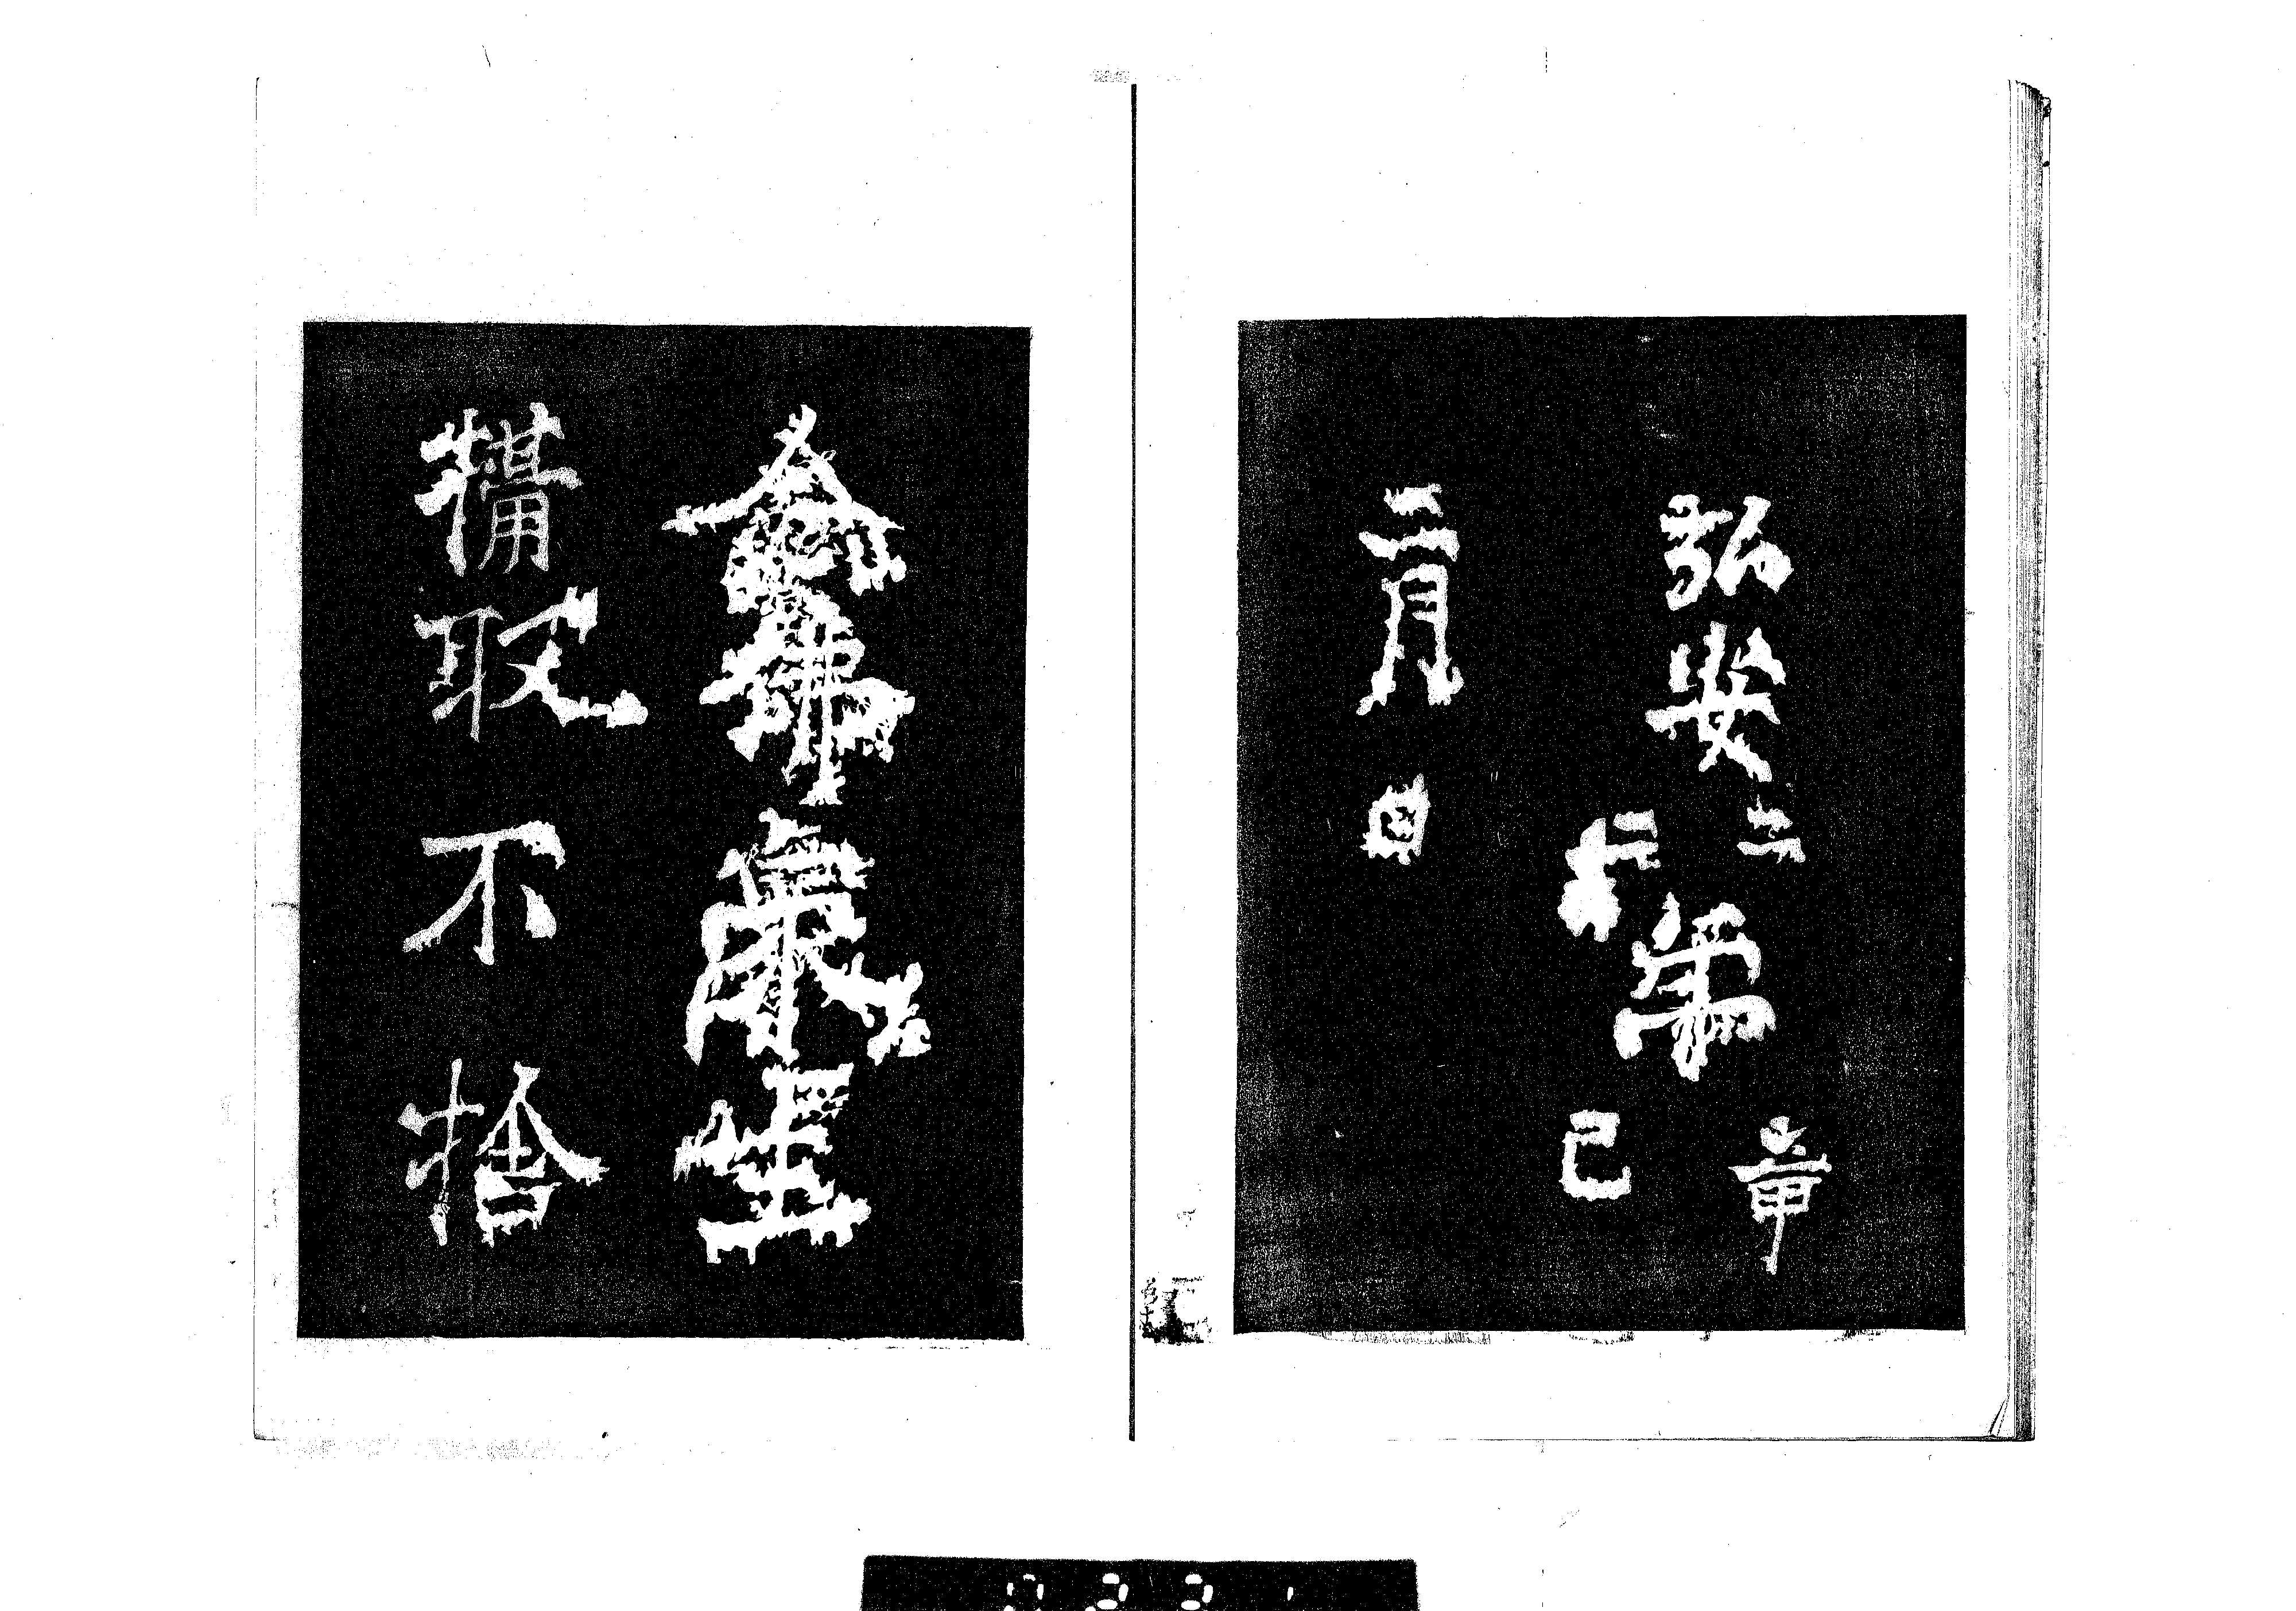 弘安二
章
己
二月日
念佛衆生
攝取不捨